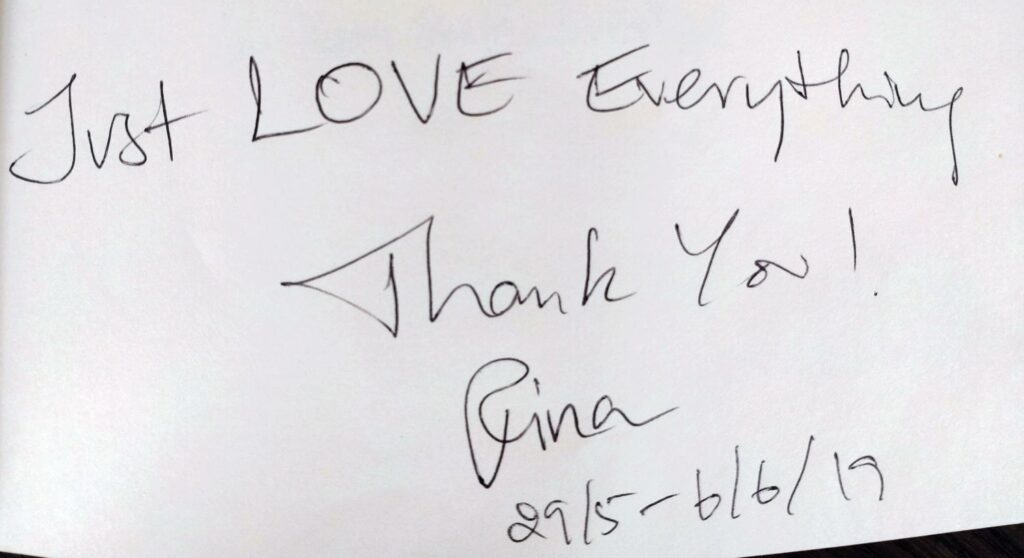 Just LOVE Everything
Thank You!
Rina
29/5 - 6/6/19